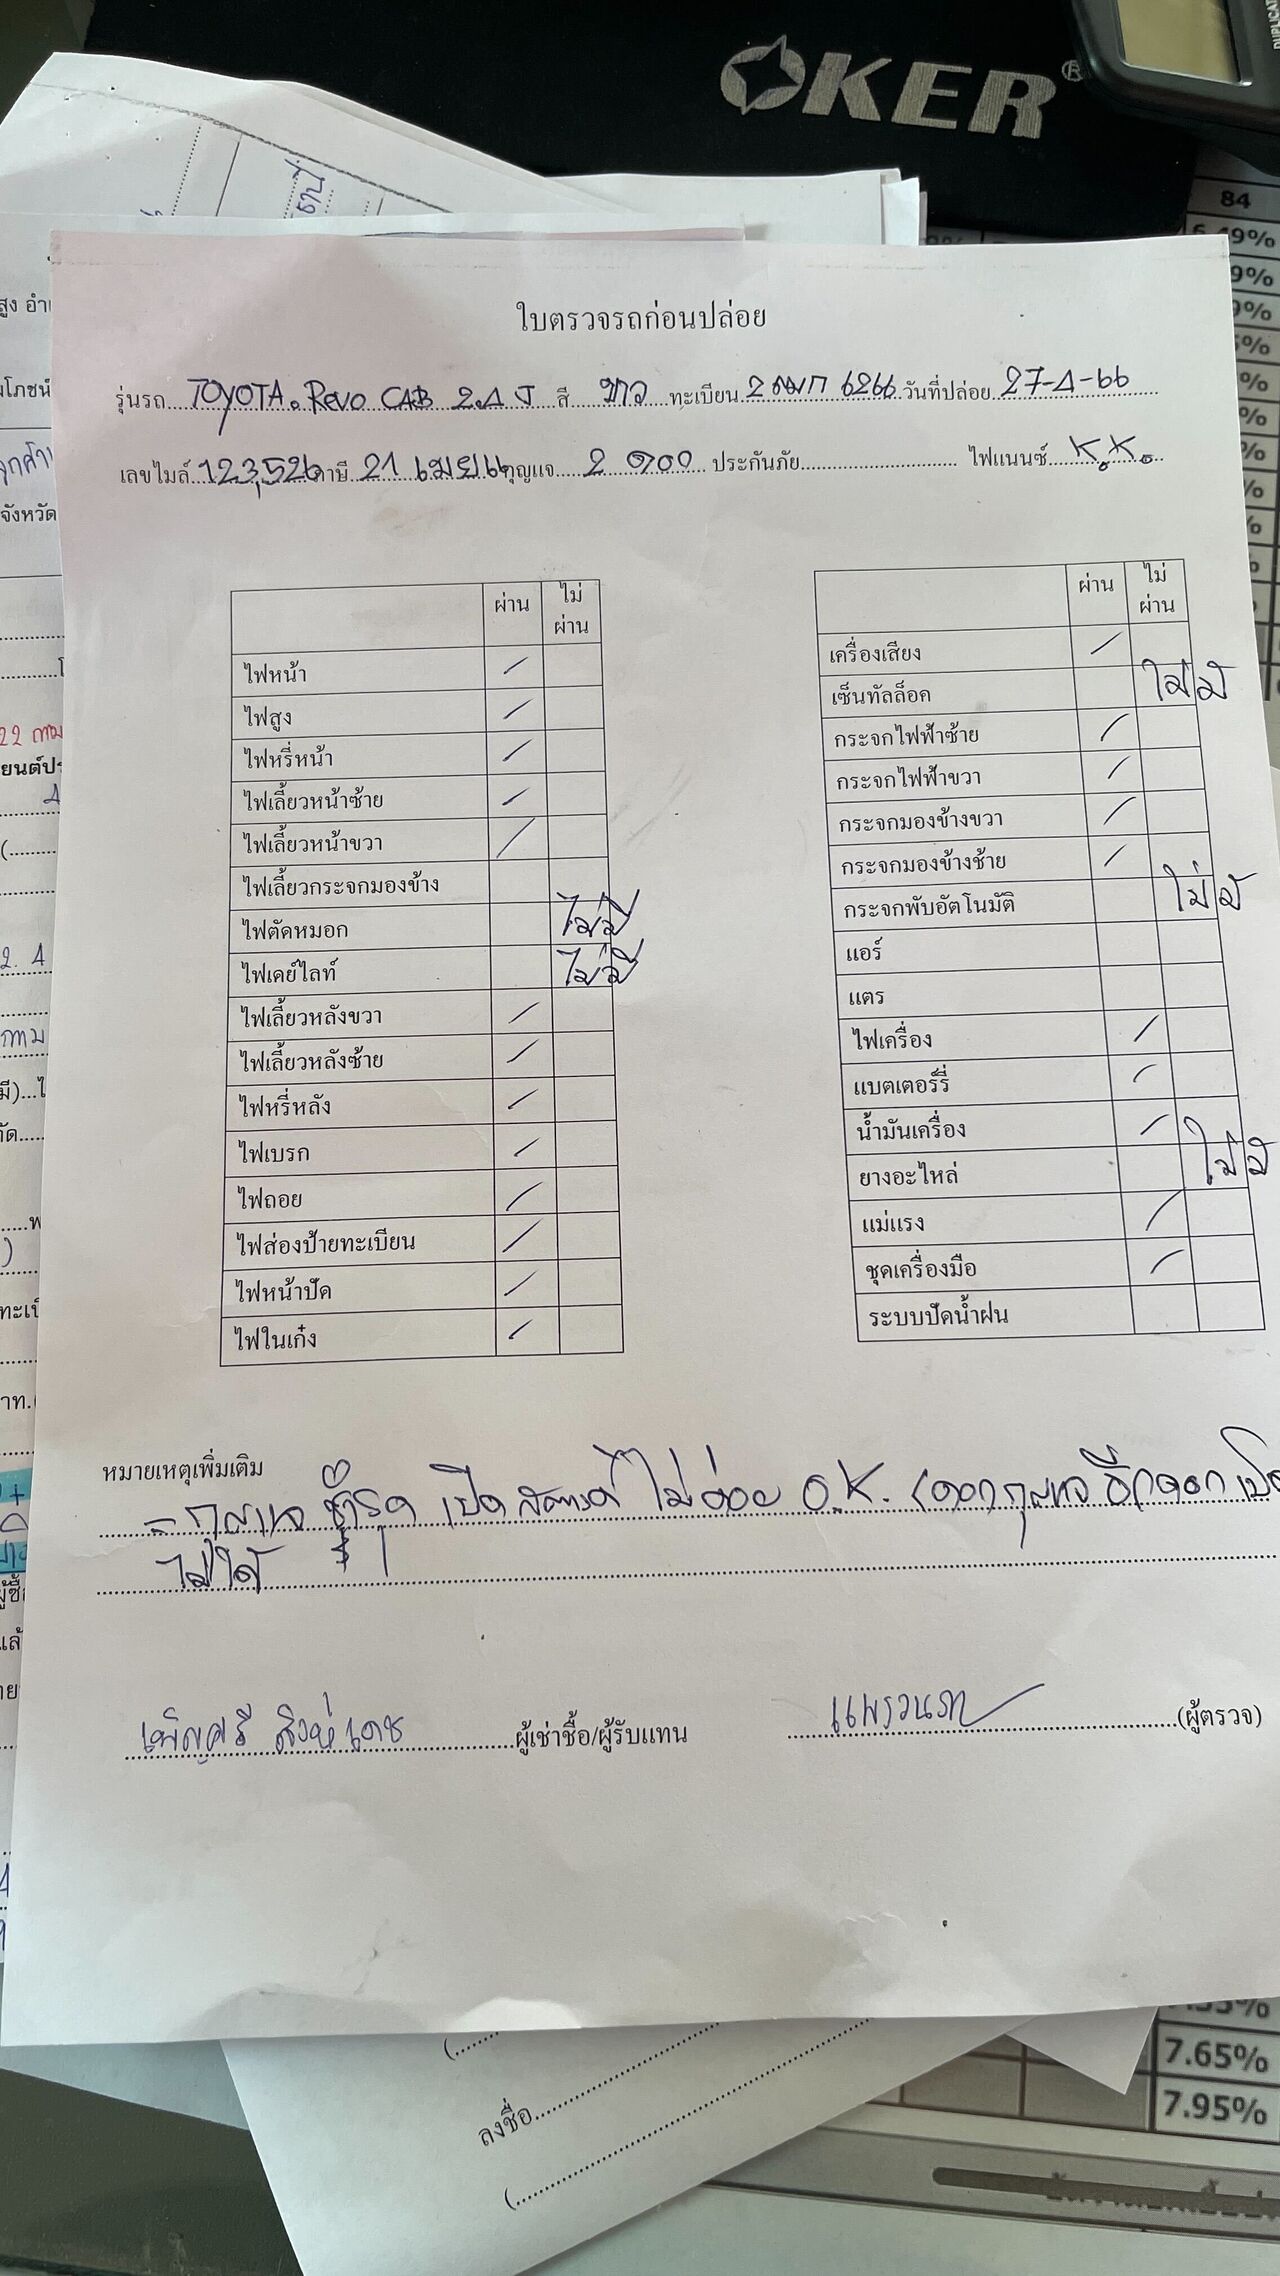 OKER®
84
6.49%
ใบตรวจรถก่อนปล่อย
รุ่นรถ TOYOTA. Revo CAB 2.4 J สี ขาว ทะเบียน 2ฒก 6266 วันที่ปล่อย 27-4-66
เลขไมล์ 123,526 ภาษี 21 เมย 66 กุญแจ 2 ดอก ประกันภัย ไฟแนนซ์ K.K.
ผ่าน ไม่ผ่าน
ไฟหน้า /
ไฟสูง /
ไฟหรี่หน้า /
ไฟเลี้ยวหน้าซ้าย /
ไฟเลี้ยวหน้าขวา /
ไฟเลี้ยวกระจกมองข้าง
ไฟตัดหมอก ไม่มี
ไฟเดย์ไลท์ ไม่มี
ไฟเลี้ยวหลังขวา /
ไฟเลี้ยวหลังซ้าย /
ไฟหรี่หลัง /
ไฟเบรก /
ไฟถอย /
ไฟส่องป้ายทะเบียน /
ไฟหน้าปัด /
ไฟในเก๋ง /
ผ่าน ไม่ผ่าน
เครื่องเสียง /
เซ็นทัลล็อค ไม่มี
กระจกไฟฟ้าซ้าย /
กระจกไฟฟ้าขวา /
กระจกมองข้างขวา /
กระจกมองข้างซ้าย /
กระจกพับอัตโนมัติ ไม่มี
แอร์
แตร
ไฟเครื่อง /
แบตเตอร์รี่ /
น้ำมันเครื่อง /
ยางอะไหล่ ไม่มี
แม่แรง /
ชุดเครื่องมือ /
ระบบปัดน้ำฝน
หมายเหตุเพิ่มเติม
- กุญแจ ชำรุด เปิด สตาร์ท ไม่ค่อย O.K. (ดอกกุญแจ อีกดอก เปิด
ไม่ได้
เพ็ญศรี สิงห์เดช ผู้เช่าซื้อ/ผู้รับแทน แพรวนภา (ผู้ตรวจ)
ลงชื่อ
7.65%
7.95%